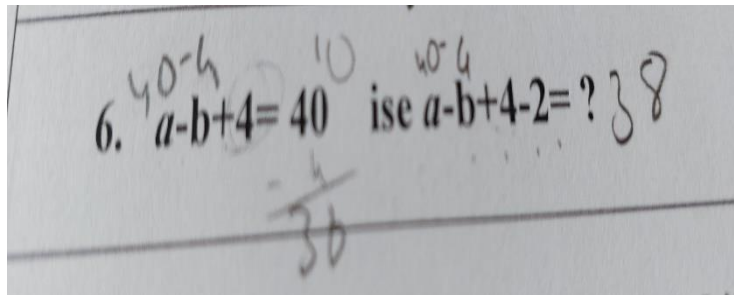 40-4 10 40-4
6. a-b+4= 40 ise a-b+4-2= ? 38
- 4
36